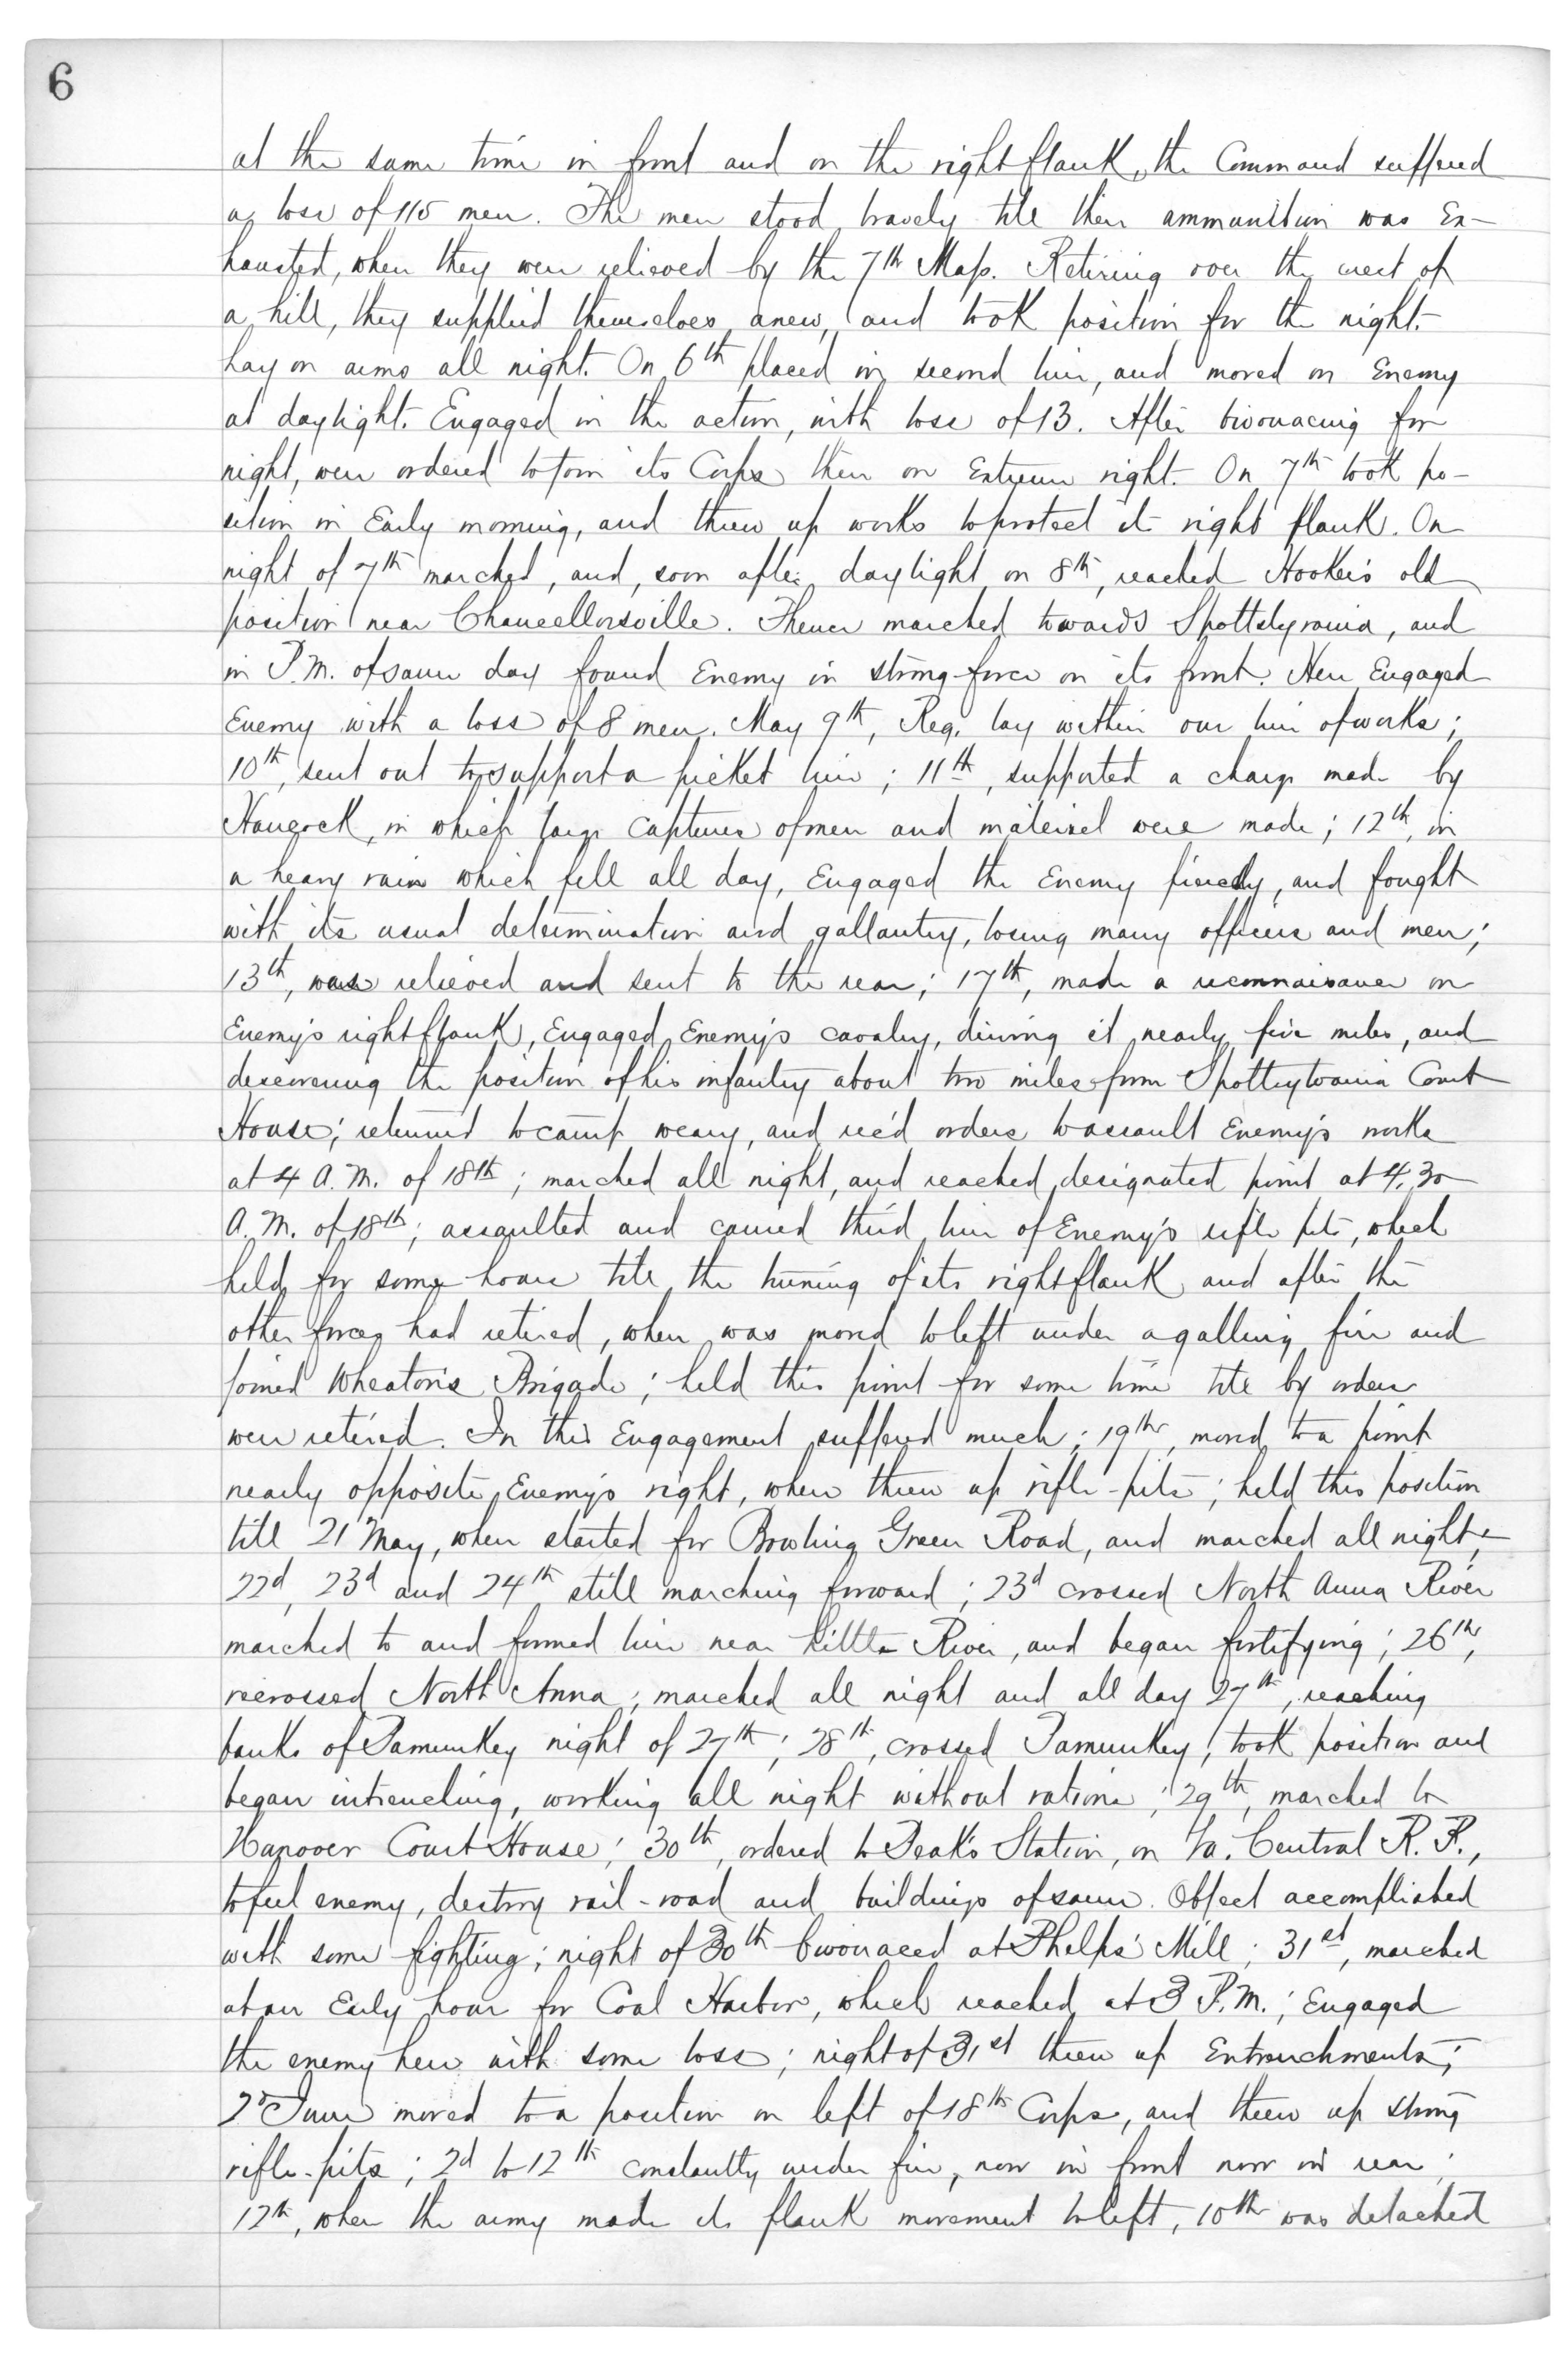 6
at the same time in front and on the right flank, the Command suffered
a loss of 115 men. The men stood bravely till their ammunition was Ex-
hausted, when they were relieved by the 7th Mass. Retiring over the crest of
a hill, they supplied themselves anew, and took position for the night.
Lay on arms all night. On 6th placed in second line, and moved on Enemy
at daylight. Engaged in the action, with loss of 13. After bivouacing for
night, were ordered to join its Corps then on Extreme right. On 7th took po-
sition in Early morning, and threw up works to protect its right flank. On
night of 7th marched, and, soon after daylight on 8th, reached Hooker's old
position near Chancellorsville. Thence marched towards Spottslyvania, and
in P.M. of same day found Enemy in strong force on its front. Here Engaged
Enemy with a loss of 8 men. May 9th, Reg. lay within our line of works;
10th, sent out to support a picket line; 11th, supported a charge made by
Hancock, in which large captures of men and materiel were made; 12th, in
a heavy rain which fell all day, Engaged the Enemy fiercely, and fought
with its usual determination and gallantry, losing many officers and men;
13th, was relieved and sent to the rear; 17th, made a reconnaisance on
Enemy's right flank, Engaged Enemy's cavalry, driving it nearly five miles, and
discovering the position of his infantry about two miles from Spottsylvania Court
House; returned to camp weary, and rec'd orders to assault Enemy's works
at 4 A.M. of 18th; marched all night, and reached designated point at 4.30
A.M. of 18th; assaulted and carried third line of Enemy's rifle pits, which
held for some hours till the turning of its right flank and after the
other forces had retired, when was moved to left under a galling fire and
joined Wheaton's Brigade; held this point for some time till by orders
were retired. In this Engagement suffered much; 19th, moved to a point
nearly opposite Enemy's right, where threw up rifle-pits; held this position
till 21 May, when started for Bowling Green Road, and marched all night;
22d, 23d and 24th still marching forward; 23d crossed North Anna River
marched to and formed line near Little River, and began fortifying; 26th,
recrossed North Anna; marched all night and all day 27th, reaching
banks of Pamunkey night of 27th; 28th, crossed Pamunkey, took position and
began intrenching, working all night without rations; 29th, marched to
Hanover Court House; 30th, ordered to Peak's Station, on Va. Central R. R.,
to feel enemy, destroy rail-road and buildings of same. Object accomplished
with some fighting; night of 30th bivouaced at Phelps' Mill; 31st, marched
at an Early hour for Coal Harbor, which reached at 3 P.M.; Engaged
the enemy here with some loss; night of 31st threw up Entrenchments;
2d June moved to a position on left of 18th Corps, and threw up strong
rifle-pits; 2d to 12th constantly under fire, now in front now in rear;
12th, when the army made its flank movement to left, 10th was detached